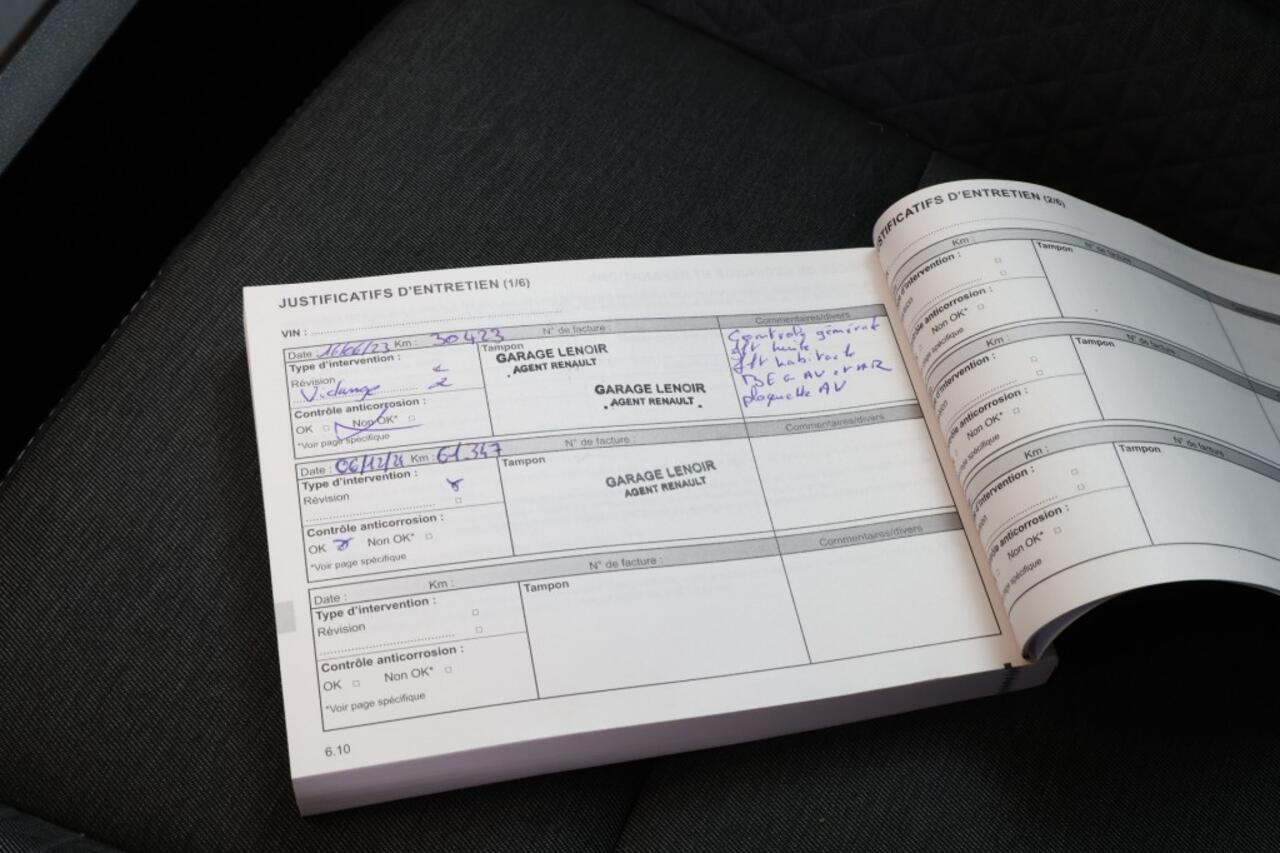 JUSTIFICATIFS D'ENTRETIEN (1/6)
VIN :
Date : 16/06/23 Km : 30423 N° de facture : Commentaires/divers
Type d'intervention :
Révision
Vidange
Contrôle anticorrosion :
OK □ Non OK* □
*Voir page spécifique
Tampon
GARAGE LENOIR
AGENT RENAULT
GARAGE LENOIR
AGENT RENAULT
Controle général
flt huile
flt habitacle
AV et AR
plaquette AV
Date : 06/12/24 Km : 61.347 N° de facture : Commentaires/divers
Type d'intervention :
Révision
Contrôle anticorrosion :
OK Non OK* □
*Voir page spécifique
Tampon
GARAGE LENOIR
AGENT RENAULT
Date : Km : N° de facture : Commentaires/divers
Type d'intervention :
Révision □
Contrôle anticorrosion :
OK □ Non OK* □
*Voir page spécifique
Tampon
6.10
JUSTIFICATIFS D'ENTRETIEN (2/6)
Km : N° de facture
Type d'intervention :
Contrôle anticorrosion :
Non OK* □
spécifique
Tampon
Km : N° de facture
d'intervention :
anticorrosion :
Non OK* □
spécifique
Tampon
Km : N° de facture
d'intervention :
anticorrosion :
Non OK* □
spécifique
Tampon